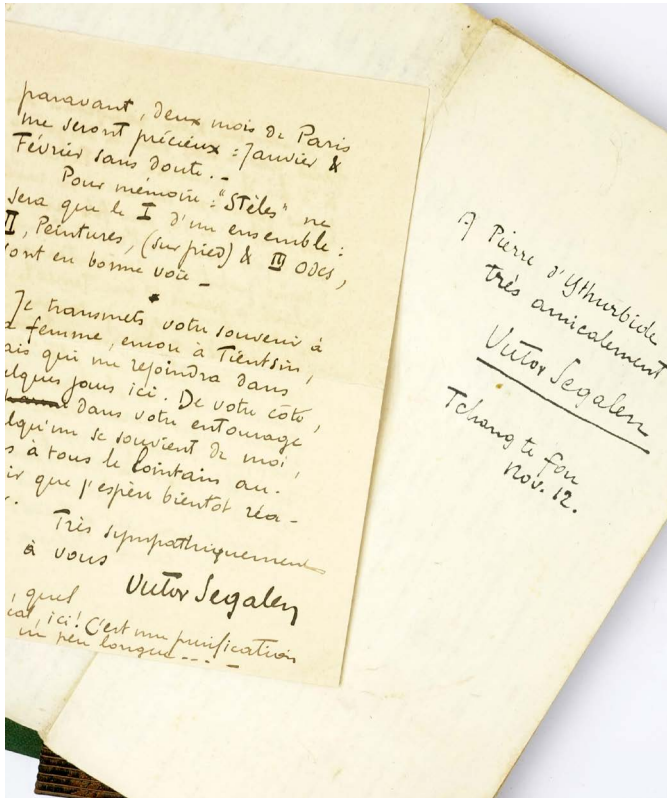 paravant, deux mois de Paris
me seront précieux : Janvier &
Février sans doute. –
Pour mémoire : "Stèles" ne
sera que le I d'un ensemble :
II, Peintures, (sur pied) & III Odes,
sont en bonne voie –
Je transmets votre souvenir à
femme, encore à Tientsin,
ais qui me rejoindra dans
elques jours ici. De votre côté,
dans votre entourage
lqu'un se souvient de moi,
s à tous le lointain au-
ir que j'espère bientôt réa-
Très sympathiquement
à vous
Victor Segalen
, quel
cal, ici! C'est une purification
un peu longue ----
A Pierre d'Ythurbide
très amicalement
Victor Segalen
Tchang te fou
Nov. 12.